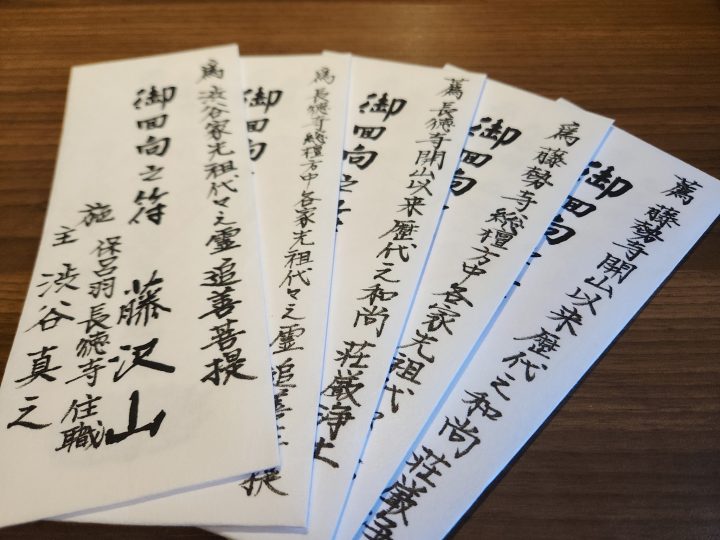 為渋谷家先祖代々之霊追善菩提
御回向之符 藤沢山
施主
保呂羽長徳寺住職
渋谷真之
為長徳寺総檀方中各家先祖代々之霊追善提
御回向
薦長徳寺開山以来歴代之和尚 荘厳浄土
御回向之
為藤勢寺総檀方中各家先祖代
御回向
薦藤勢寺開山以来歴代之和尚 荘厳浄
御回向